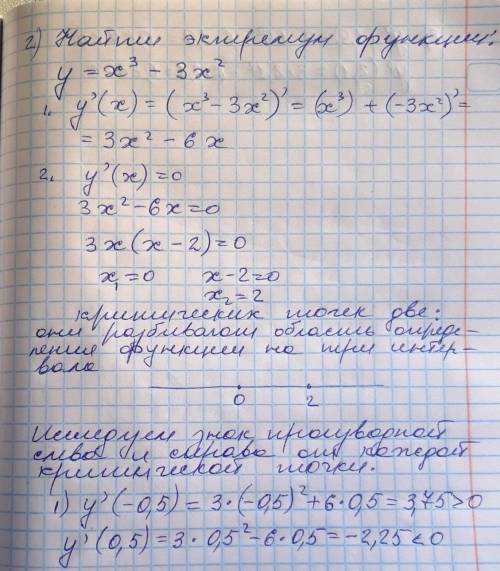 2) Найти экстремум функции:
y = x³ - 3x²
1. y'(x) = (x³ - 3x²)' = (x³) + (-3x²)' =
= 3x² - 6x
2. y'(x) = 0
3x² - 6x = 0
3x(x - 2) = 0
x₁ = 0 x - 2 = 0
x₂ = 2
критических точек две:
они разбивают область опреде-
ления функции на три интер-
вала
0 2
Исследуем знак производной
слева и справа от каждой
критической точки.
1) y'(-0,5) = 3·(-0,5)² + 6·0,5 = 3,75 > 0
y'(0,5) = 3·0,5² - 6·0,5 = -2,25 < 0